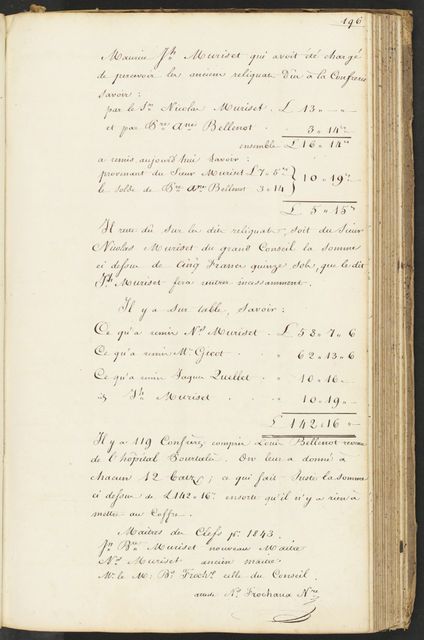 196
Maurice Jh. Muriset qui avoit été chargé
de percevoir les anciens reliquats dûs à la Confrerie
savoir :
par le Sr. Nicolas Muriset . £ 13 " — " —
et par Bre. Ame. Bellenot . " 3 " 14 "
ensemble £ 16 " 14 "
a remis aujourd'hui savoir :
provenant du Sieur Muriset £ 7 " 5 "
le solde de Bre. Ame. Bellenot 3 " 14 } 10 " 19 "
£ 5 " 15 "
Il reste dû sur les dits reliquats, soit du Sieur
Nicolas Muriset du grand Conseil la somme
ci dessus de Cinq Francs quinze sols, que le dit
Jh. Muriset fera rentrer incessamment.
Il y a sur table, savoir :
Ce qu'a remis Ns. Muriset . £ 58 " 7 " 6
Ce qu'a remis Mr. Gicot . " 62 " 13 " 6
Ce qu'a remis Jaques Quellet . " 10 " 16 " —
" Jh. Muriset . . " 10 " 19 " —
£ 142 " 16 " —
Il y a 119 Confrères, compris Louis Bellenot
de l'hôpital Pourtalès. On leur a donné à
chacun 12 Batz ; ce qui fait juste la somme
ci dessus de £ 142 " 16 s. ensorte qu'il n'y a rien à
mettre au Coffre.
Maîtres des Clefs pr. 1843.
Jn. Bte. Muriset nouveau Maitre
Ns. Muriset ancien maitre
Mr. le M: Bd. Froch. celle du Conseil.
atteste Ns. Frochaux Nre.